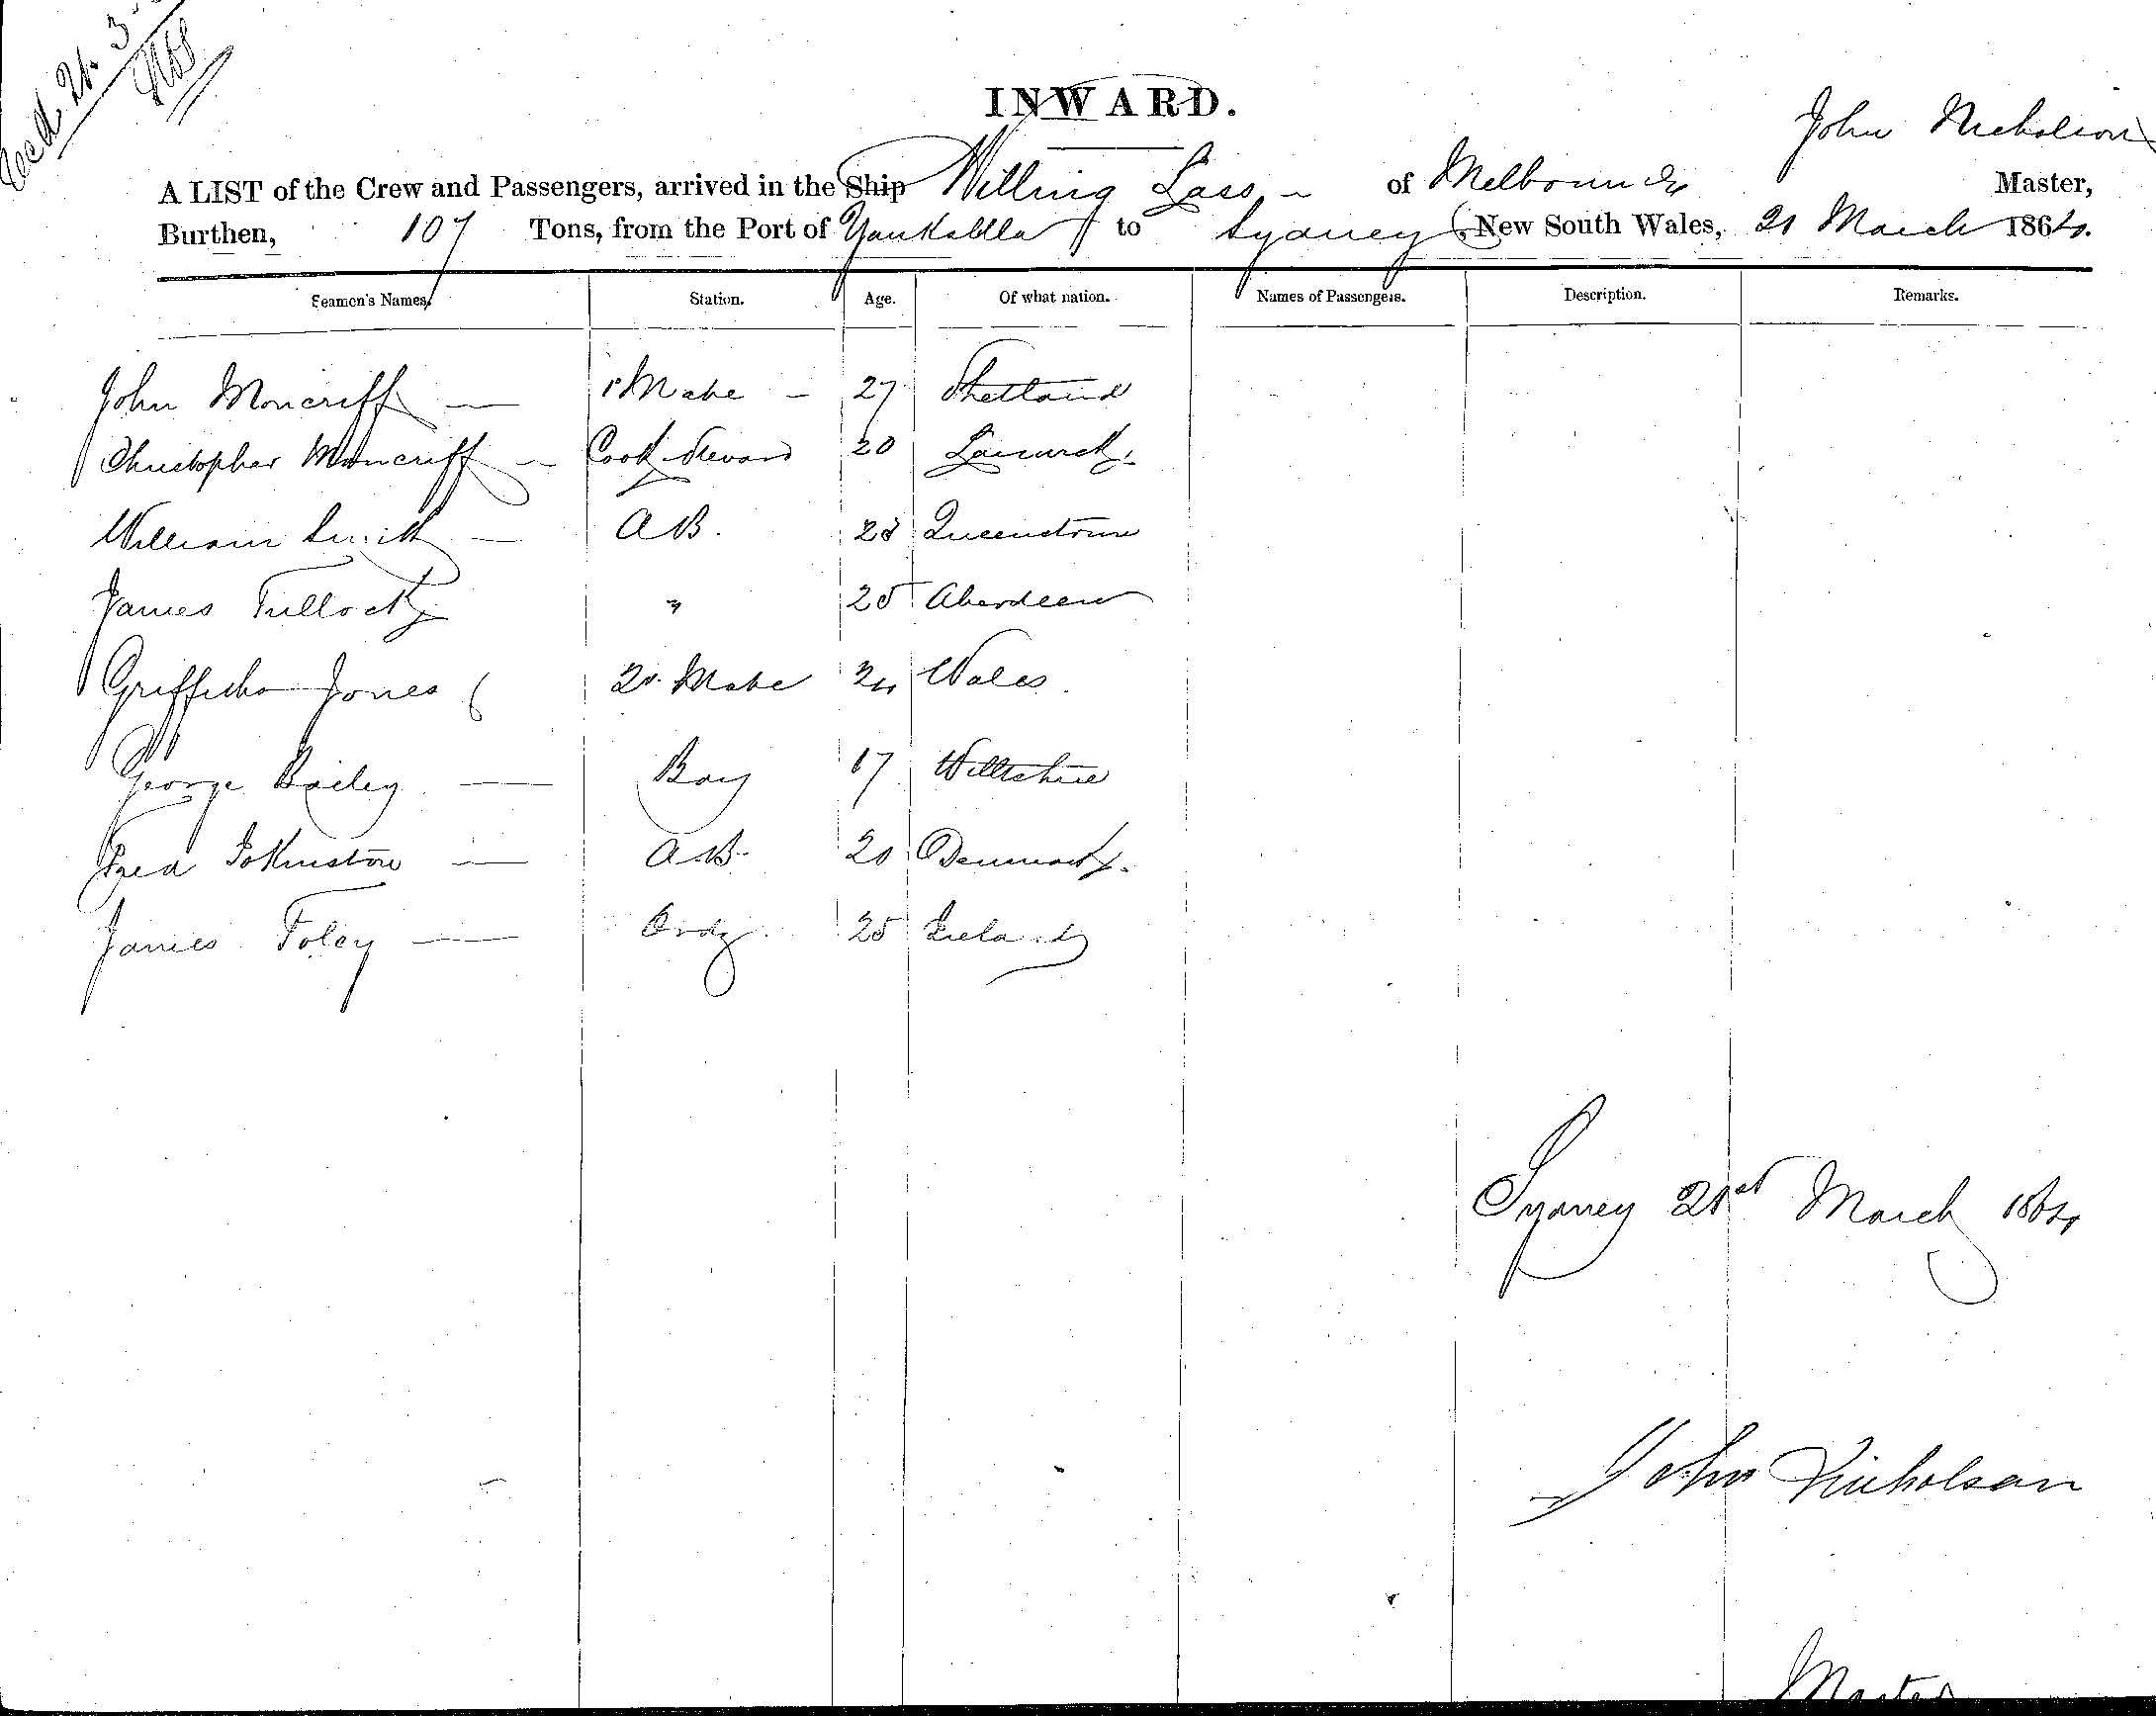 Recd. 21. 3
INWARD.
John Nicholson
A LIST of the Crew and Passengers, arrived in the Ship Willing Lass of Melbourne Master,
Burthen, 107 Tons, from the Port of Yankalilla to Sydney, New South Wales, 21 March 1864.
Seamen's Names. Station. Age. Of what nation. Names of Passengers. Description. Remarks.
John Moncriff 1 Mate 27 Shetland
Christopher Moncriff Cook Steward 20 Lanarck
William Smith AB. 28 Queenstown
James Tullock " 25 Aberdeen
Griffiths Jones 2d. Mate 24 Wales
George Bailey Boy 17 Wiltshire
Fred Johnstone AB. 20 Denmark.
James Foley Ordy. 25 Ireland
Sydney 21st March 1864
John Nicholson
Master